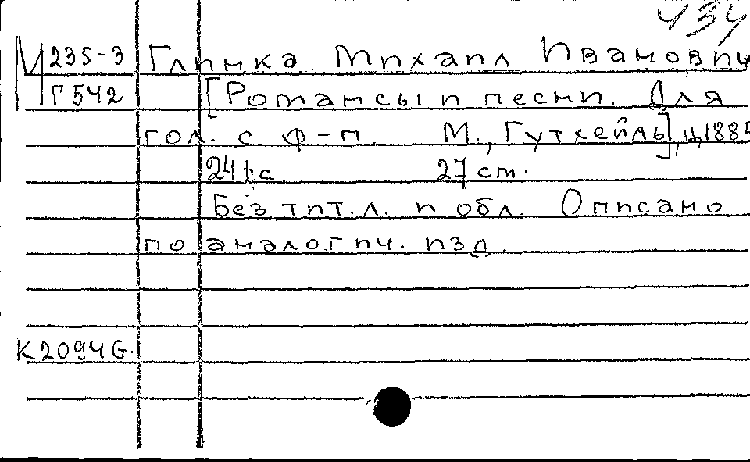 434
М 235-3 Глинка Михаил Иванович
Г 542 [Романсы и песни. Для
гол. с ф-п. М., Гутхейль], ц. 1885
241 с. 27 см.
Без тит. л. и обл. Описано
по аналогич. изд.
К 2094 G.